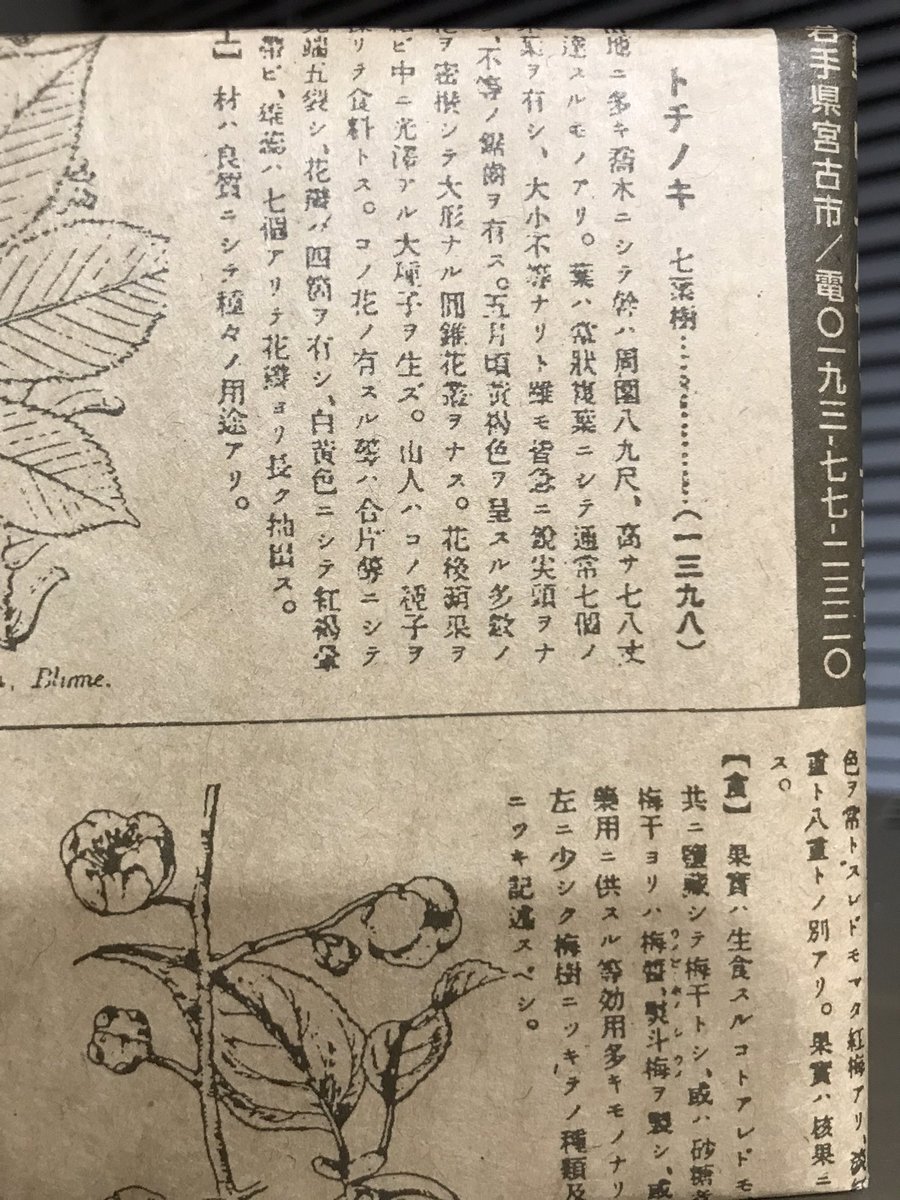 岩手県宮古市／電〇一九三-七七-二三二〇
トチノキ 七葉樹……………………(一三九八)
地ニ多キ喬木ニシテ幹ハ周圍八九尺、高サ七八丈
達スルモノアリ。葉ハ掌狀複葉ニシテ通常七個ノ
葉ヲ有シ、大小不等ナリト雖モ皆急ニ銳尖頭ヲナ
、不等ノ鋸齒ヲ有ス。五月頃黃褐色ヲ呈スル多數ノ
ヲ密撒シテ大形ナル圓錐花叢ヲナス。花後蒴果ヲ
ビ中ニ光澤アル大種子ヲ生ズ。山人ハコノ種子ヲ
リテ食料トス。コノ花ノ有スル萼ハ合片萼ニシテ
先端五裂シ、花瓣ハ四箇ヲ有シ、白黃色ニシテ紅褐暈
帶ビ、雄蕊ハ七個アリテ花瓣ヨリ長ク抽出ス。
材ハ良質ニシテ種々ノ用途アリ。
Blume.
色ヲ常トスレドモマタ紅梅アリ、淡
重ト八重トノ別アリ。果實ハ核果ニ
ス。
【食】 果實ハ生食スルコトアレドモ
共ニ鹽藏シテ梅干トシ、或ハ砂糖
梅干ヨリハ梅醬、熨斗梅ヲ製シ、或
藥用ニ供スル等効用多キモノナリ
左ニ少シク梅樹ニツキテノ種類及
ニツキ記述スベシ。